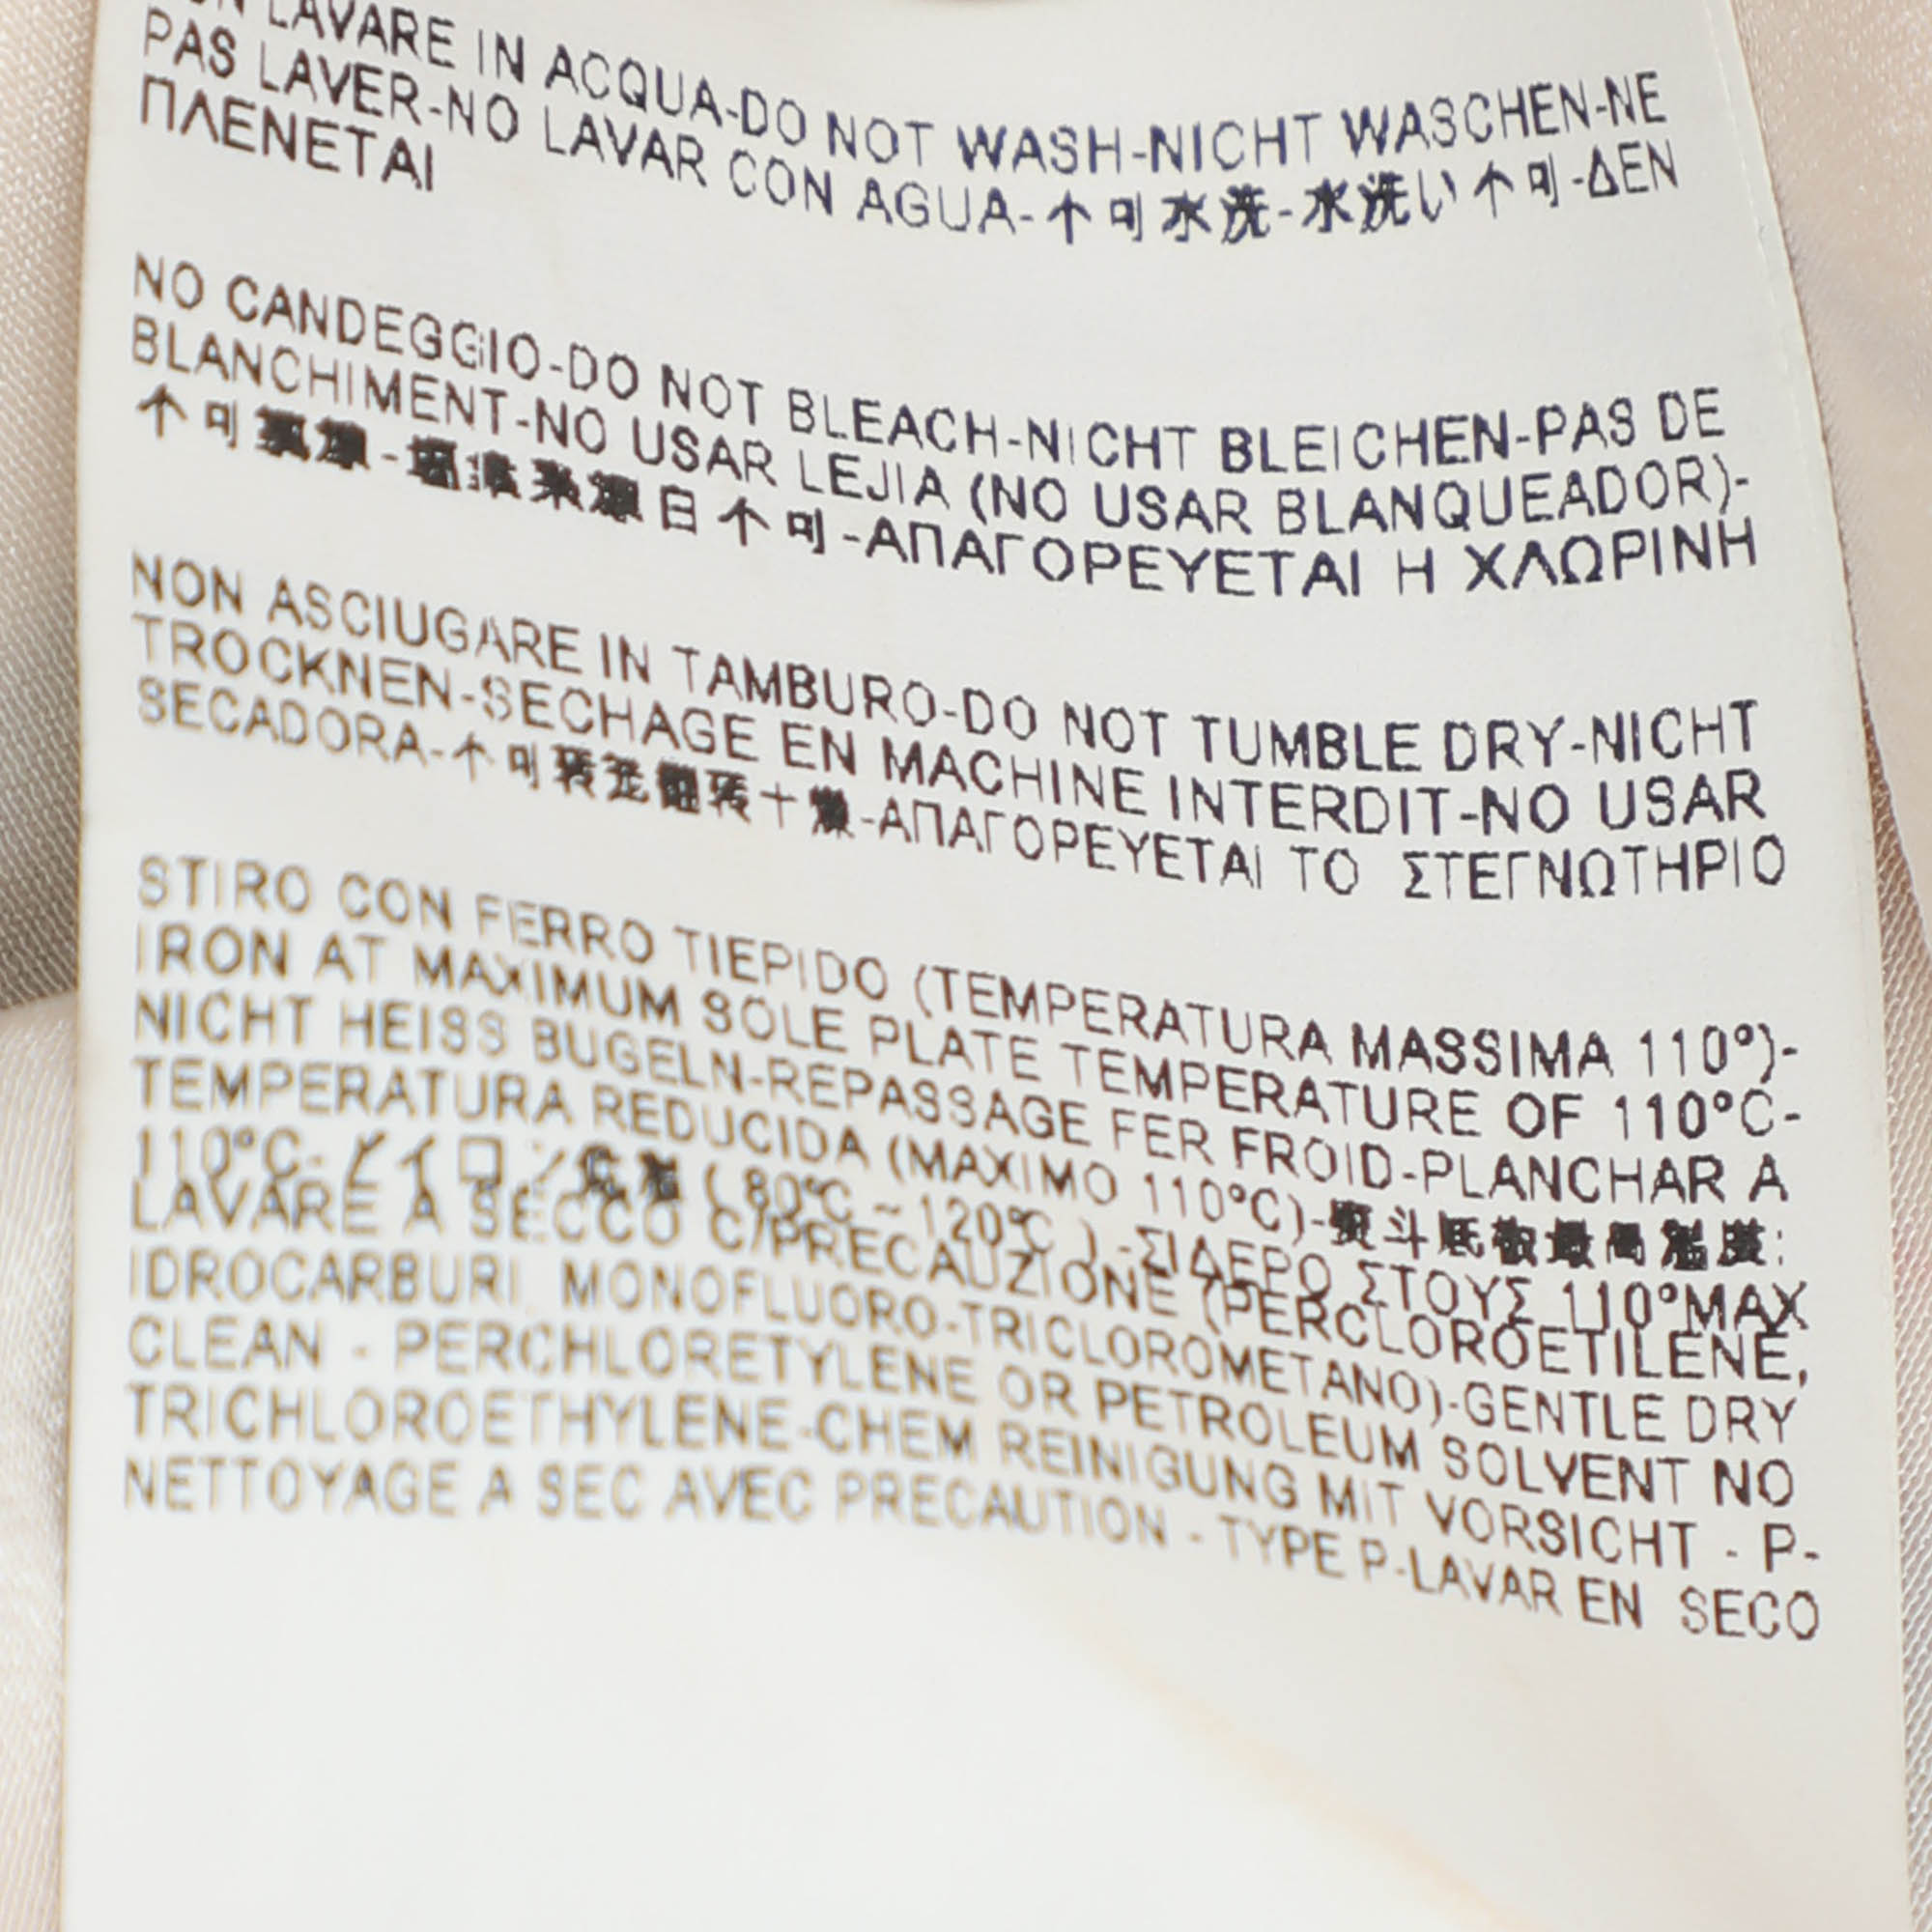 LAVARE IN ACQUA-DO NOT WASH-NICHT WASCHEN-NE
PAS LAVER-NO LAVAR CON AGUA-不可水洗-水洗い不可-ΔEN
ΠΛENETAI
NO CANDEGGIO-DO NOT BLEACH-NICHT BLEICHEN-PAS DE
BLANCHIMENT-NO USAR LEJIA (NO USAR BLANQUEADOR)-
不可氯漂-塩素系漂白不可-AΠAΓOPEYETAI H XΛΩPINH
NON ASCIUGARE IN TAMBURO-DO NOT TUMBLE DRY-NICHT
TROCKNEN-SECHAGE EN MACHINE INTERDIT-NO USAR
SECADORA-不可转笼翻转干燥-AΠAΓOPEYETAI TO ΣTEΓNΩTHPIO
STIRO CON FERRO TIEPIDO (TEMPERATURA MASSIMA 110°)-
IRON AT MAXIMUM SOLE PLATE TEMPERATURE OF 110°C-
NICHT HEISS BUGELN-REPASSAGE FER FROID-PLANCHAR A
TEMPERATURA REDUCIDA (MAXIMO 110°C)-熨斗底板最高温度:
110°C-アイロン低温(80℃~120℃)-ΣIΔEPO ΣTOYΣ 110°MAX
LAVARE A SECCO C/PRECAUZIONE (PERCLOROETILENE,
IDROCARBURI, MONOFLUORO-TRICLOROMETANO)-GENTLE DRY
CLEAN - PERCHLORETYLENE OR PETROLEUM SOLVENT NO
TRICHLOROETHYLENE-CHEM REINIGUNG MIT VORSICHT - P-
NETTOYAGE A SEC AVEC PRECAUTION - TYPE P-LAVAR EN SECO